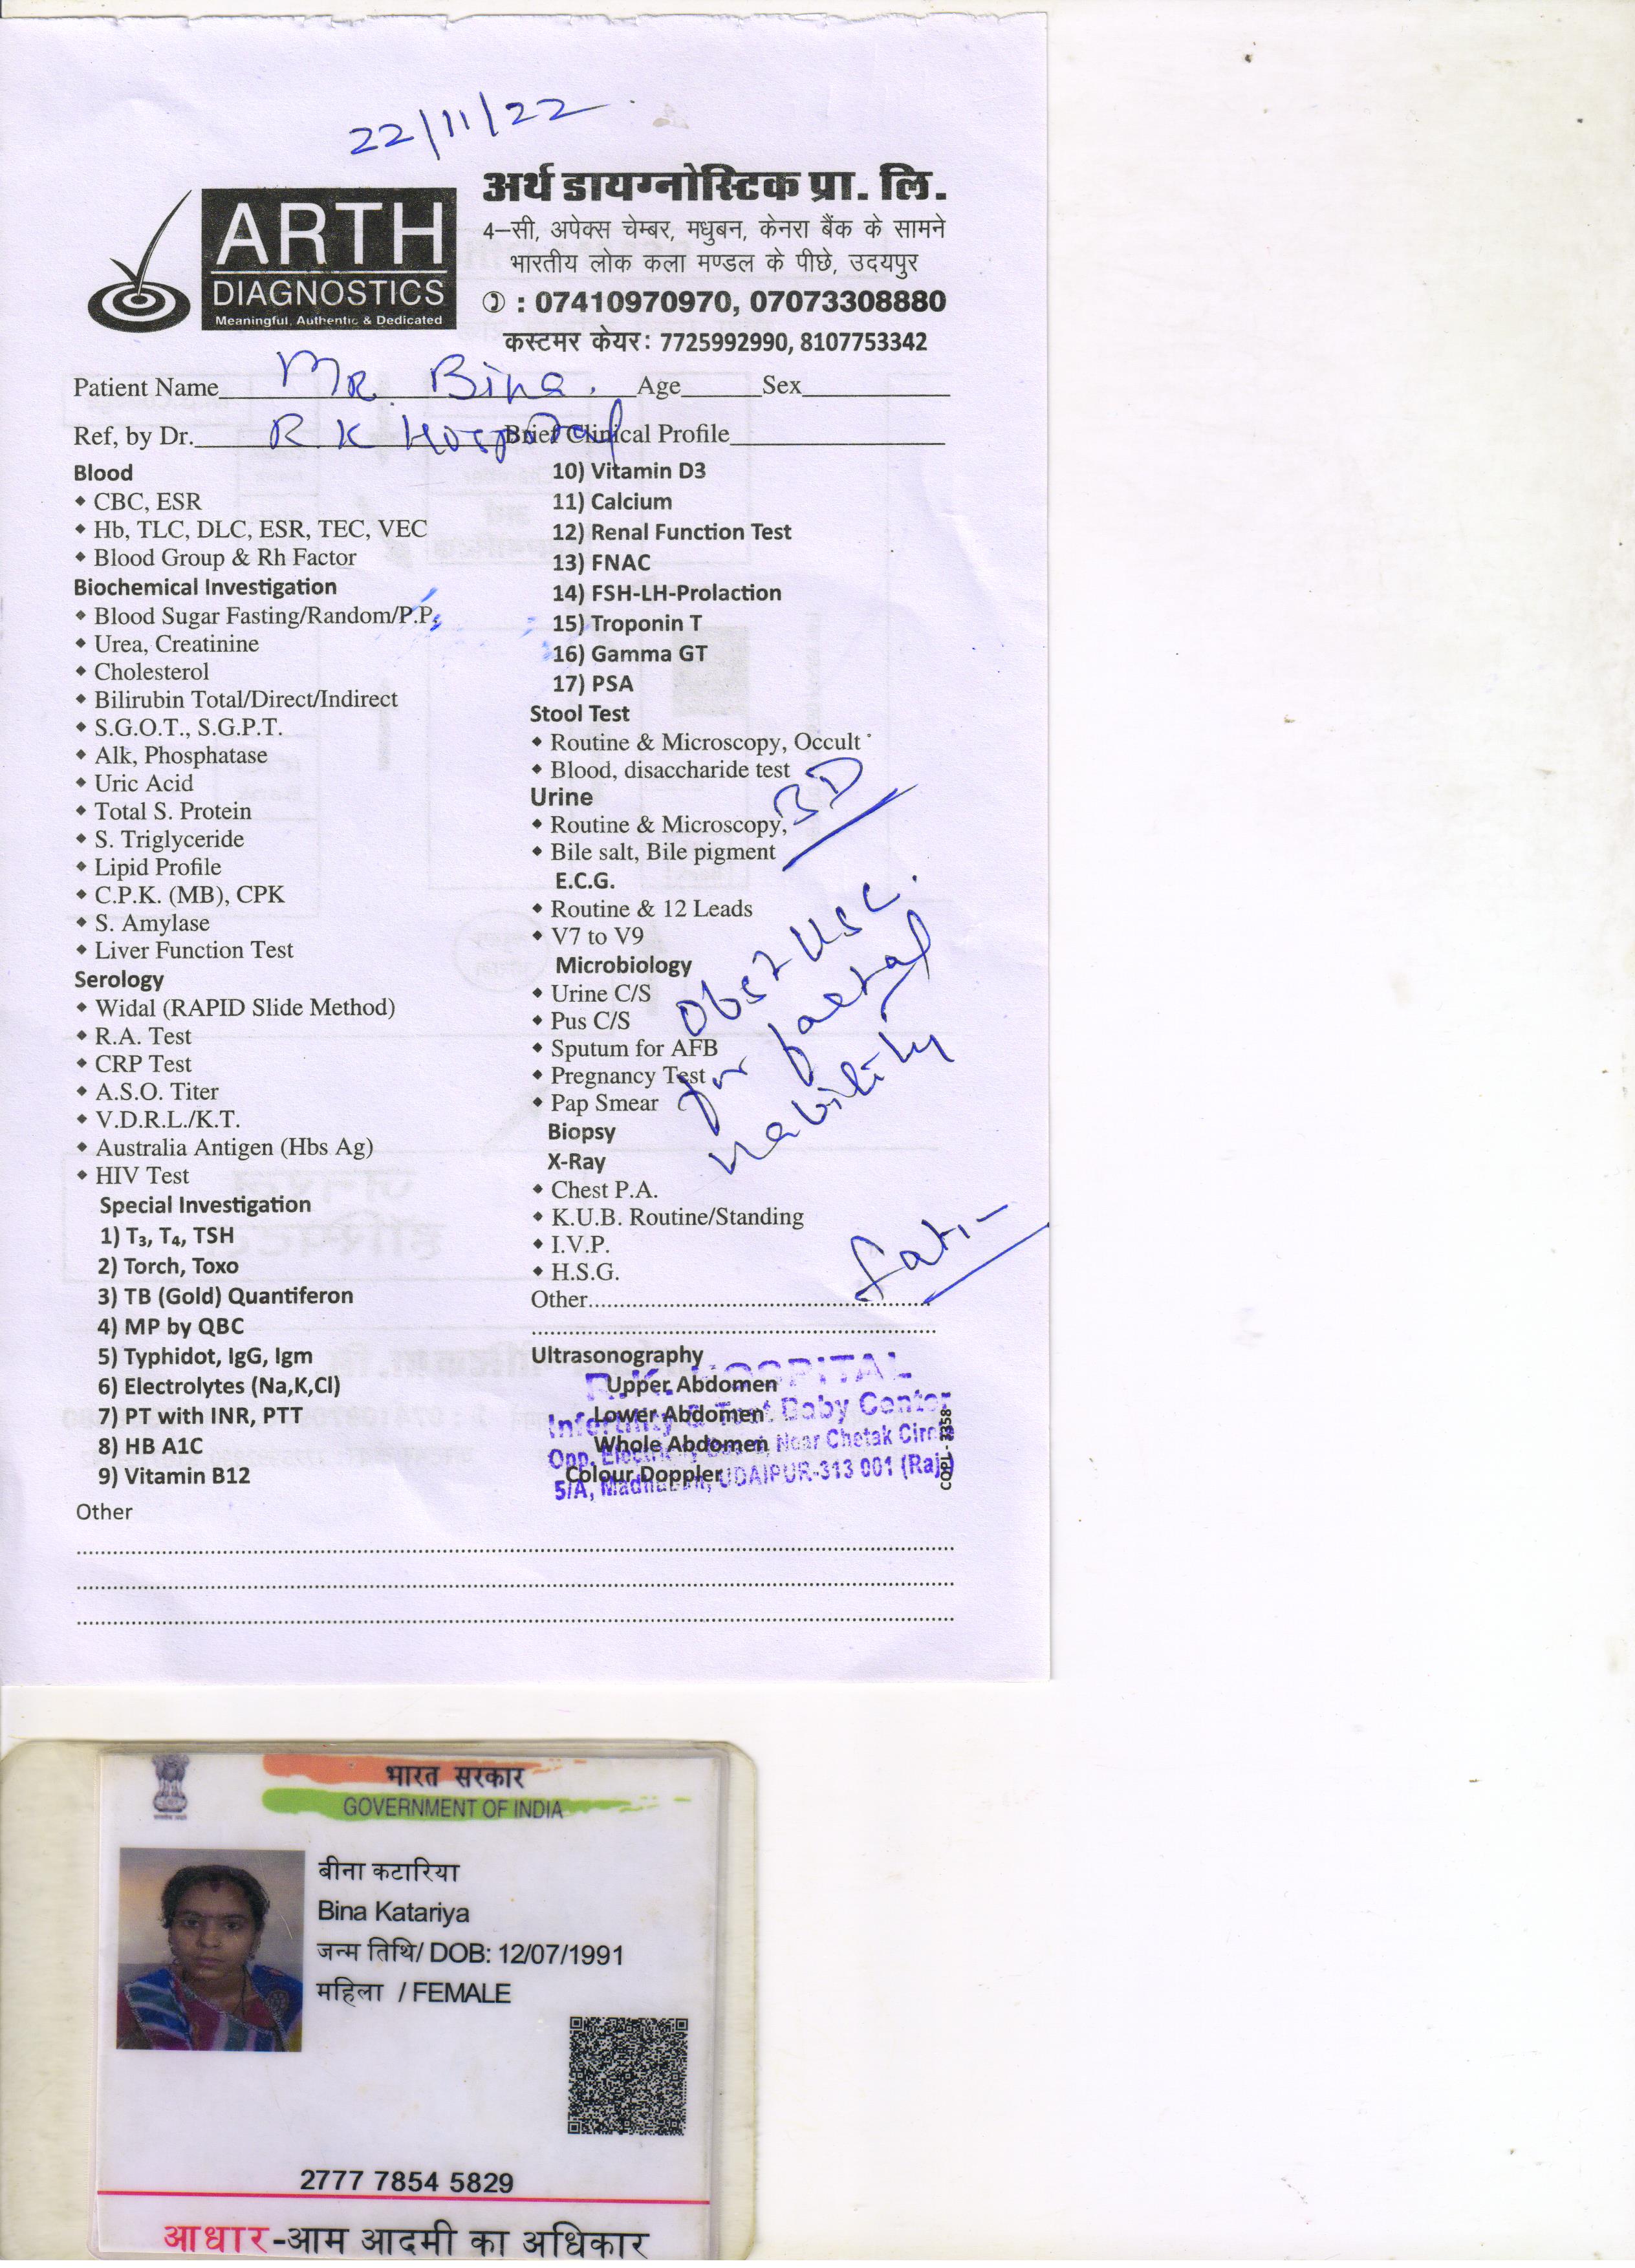 22/11/22
ARTH
DIAGNOSTICS
Meaningful, Authentic & Dedicated
अर्थ डायग्नोस्टिक प्रा. लि.
4–सी, अपेक्स चेम्बर, मधुबन, केनरा बैंक के सामने
भारतीय लोक कला मण्डल के पीछे, उदयपुर
: 07410970970, 07073308880
कस्टमर केयर: 7725992990, 8107753342
Patient Name MR. Bina. Age Sex
Ref, by Dr. R K Hospital Brief Clinical Profile
Blood
• CBC, ESR
• Hb, TLC, DLC, ESR, TEC, VEC
• Blood Group & Rh Factor
Biochemical Investigation
• Blood Sugar Fasting/Random/P.P.
• Urea, Creatinine
• Cholesterol
• Bilirubin Total/Direct/Indirect
• S.G.O.T., S.G.P.T.
• Alk, Phosphatase
• Uric Acid
• Total S. Protein
• S. Triglyceride
• Lipid Profile
• C.P.K. (MB), CPK
• S. Amylase
• Liver Function Test
Serology
• Widal (RAPID Slide Method)
• R.A. Test
• CRP Test
• A.S.O. Titer
• V.D.R.L./K.T.
• Australia Antigen (Hbs Ag)
• HIV Test
Special Investigation
1) T₃, T₄, TSH
2) Torch, Toxo
3) TB (Gold) Quantiferon
4) MP by QBC
5) Typhidot, IgG, Igm
6) Electrolytes (Na,K,Cl)
7) PT with INR, PTT
8) HB A1C
9) Vitamin B12
Other
10) Vitamin D3
11) Calcium
12) Renal Function Test
13) FNAC
14) FSH-LH-Prolaction
15) Troponin T
16) Gamma GT
17) PSA
Stool Test
• Routine & Microscopy, Occult
• Blood, disaccharide test
Urine
• Routine & Microscopy,
• Bile salt, Bile pigment
E.C.G.
• Routine & 12 Leads
• V7 to V9
Microbiology
• Urine C/S
• Pus C/S
• Sputum for AFB
• Pregnancy Test
• Pap Smear
Biopsy
X-Ray
• Chest P.A.
• K.U.B. Routine/Standing
• I.V.P.
• H.S.G.
Other
Ultrasonography
Upper Abdomen
Lower Abdomen
Whole Abdomen
Colour Doppler
3D
Obst USG
for faetal
viability
R.K. HOSPITAL
Infertility & Test Baby Center
Opp. Electricity Near Chetak Circle
5/A, Madhuban, UDAIPUR-313 001 (Raj)
भारत सरकार
GOVERNMENT OF INDIA
बीना कटारिया
Bina Katariya
जन्म तिथि/ DOB: 12/07/1991
महिला / FEMALE
2777 7854 5829
आधार-आम आदमी का अधिकार